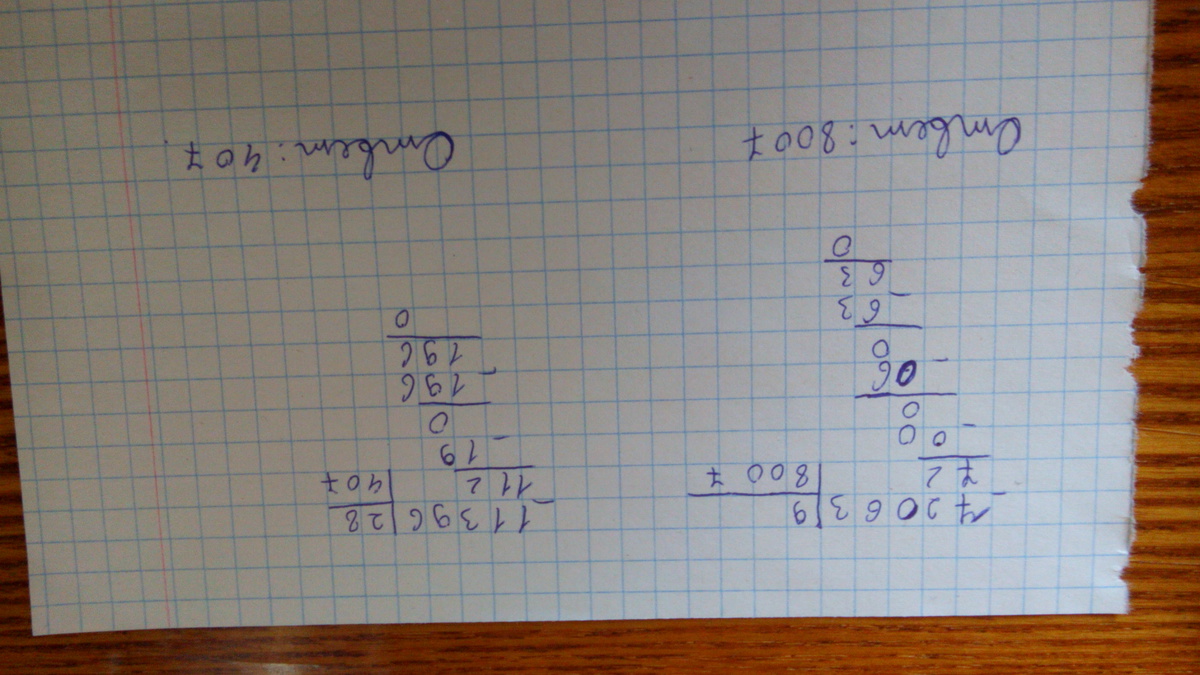 - 72063 | 9
72 | 8007
- 00
0
- 06
0
- 63
63
0
Ответ: 8007
- 11396 | 28
112 | 407
- 19
0
- 196
196
0
Ответ: 407.